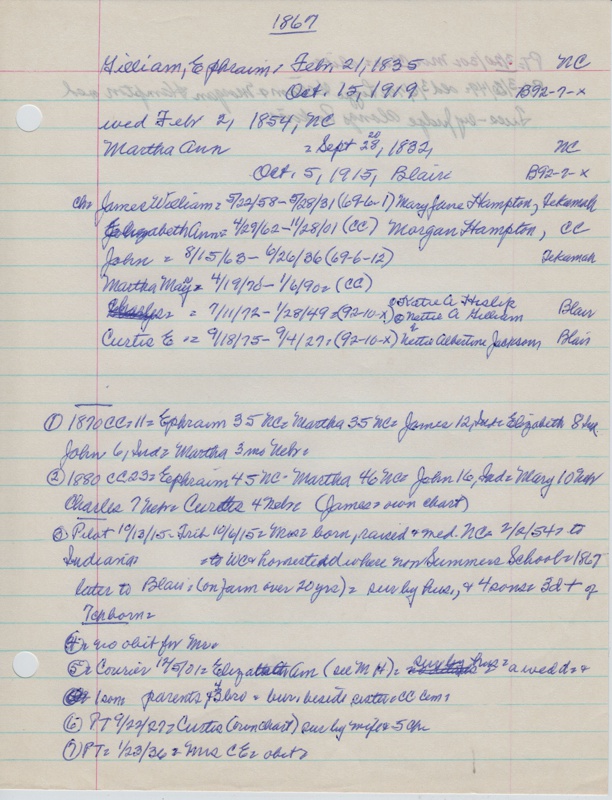 1867
Gilliam, Ephraim, Febr. 21, 1835 NC
Oct. 15, 1919 B92-7-x
wed Febr 2, 1854, NC
Martha Ann = Sept 28, 1832, NC
Oct. 5, 1915, Blair B92-7-x
ch= James William = 5/22/58 - 5/28/31 (69-6-1) Mary Jane Hampton, Tekamah
Elizabeth Ann = 4/29/62 - 11/28/01 (CC) Morgan Hampton, CC
John = 8/15/63 - 6/26/36 (69-6-12) Tekamah
Martha May = 4/19/70 - 1/6/90 = (CC)
Charles = = 7/11/72 - 1/28/49 = (92-10-x) ① Katie A Hislip
② Nettie A Gilliam Blair
Curtis E = 9/18/75 - 9/4/27 = (92-10-x) Nettie Albertine Jackson Blair
① 1870 CC = 11 = Ephraim 35 NC = Martha 35 NC = James 12, Ind = Elizabeth 8 Ind
John 6, Ind = Martha 3 mo Nebr =
② 1880 CC 23 = Ephraim 45 NC - Martha 46 NC = John 16, Ind = Mary 10 Nebr
Charles 7 Nebr = Curtis 4 Nebr (James = own chart)
③ Pilot 10/13/15 - Trib 10/6/15 = Mrs = born, raised & med. NC = 2/2/54 = to
Indiana = to WC & homestead where now Summers School = 1867
later to Blair = (on farm over 20 yrs) = sur by hus., & 4 sons = 3d + of
④ = no obit for Mr =
⑤ = Courier 12/5/01 = Elizabeth Am (see M H) = sur by hus = a wed d = &
1 son = parents & 3 bro = bur. beside sister = CC Cem =
⑥ PT 9/22/27 = Curtis (own chart) sur by wife & 5 ch
⑦ PT = 1/23/36 = Mrs C E = obit =